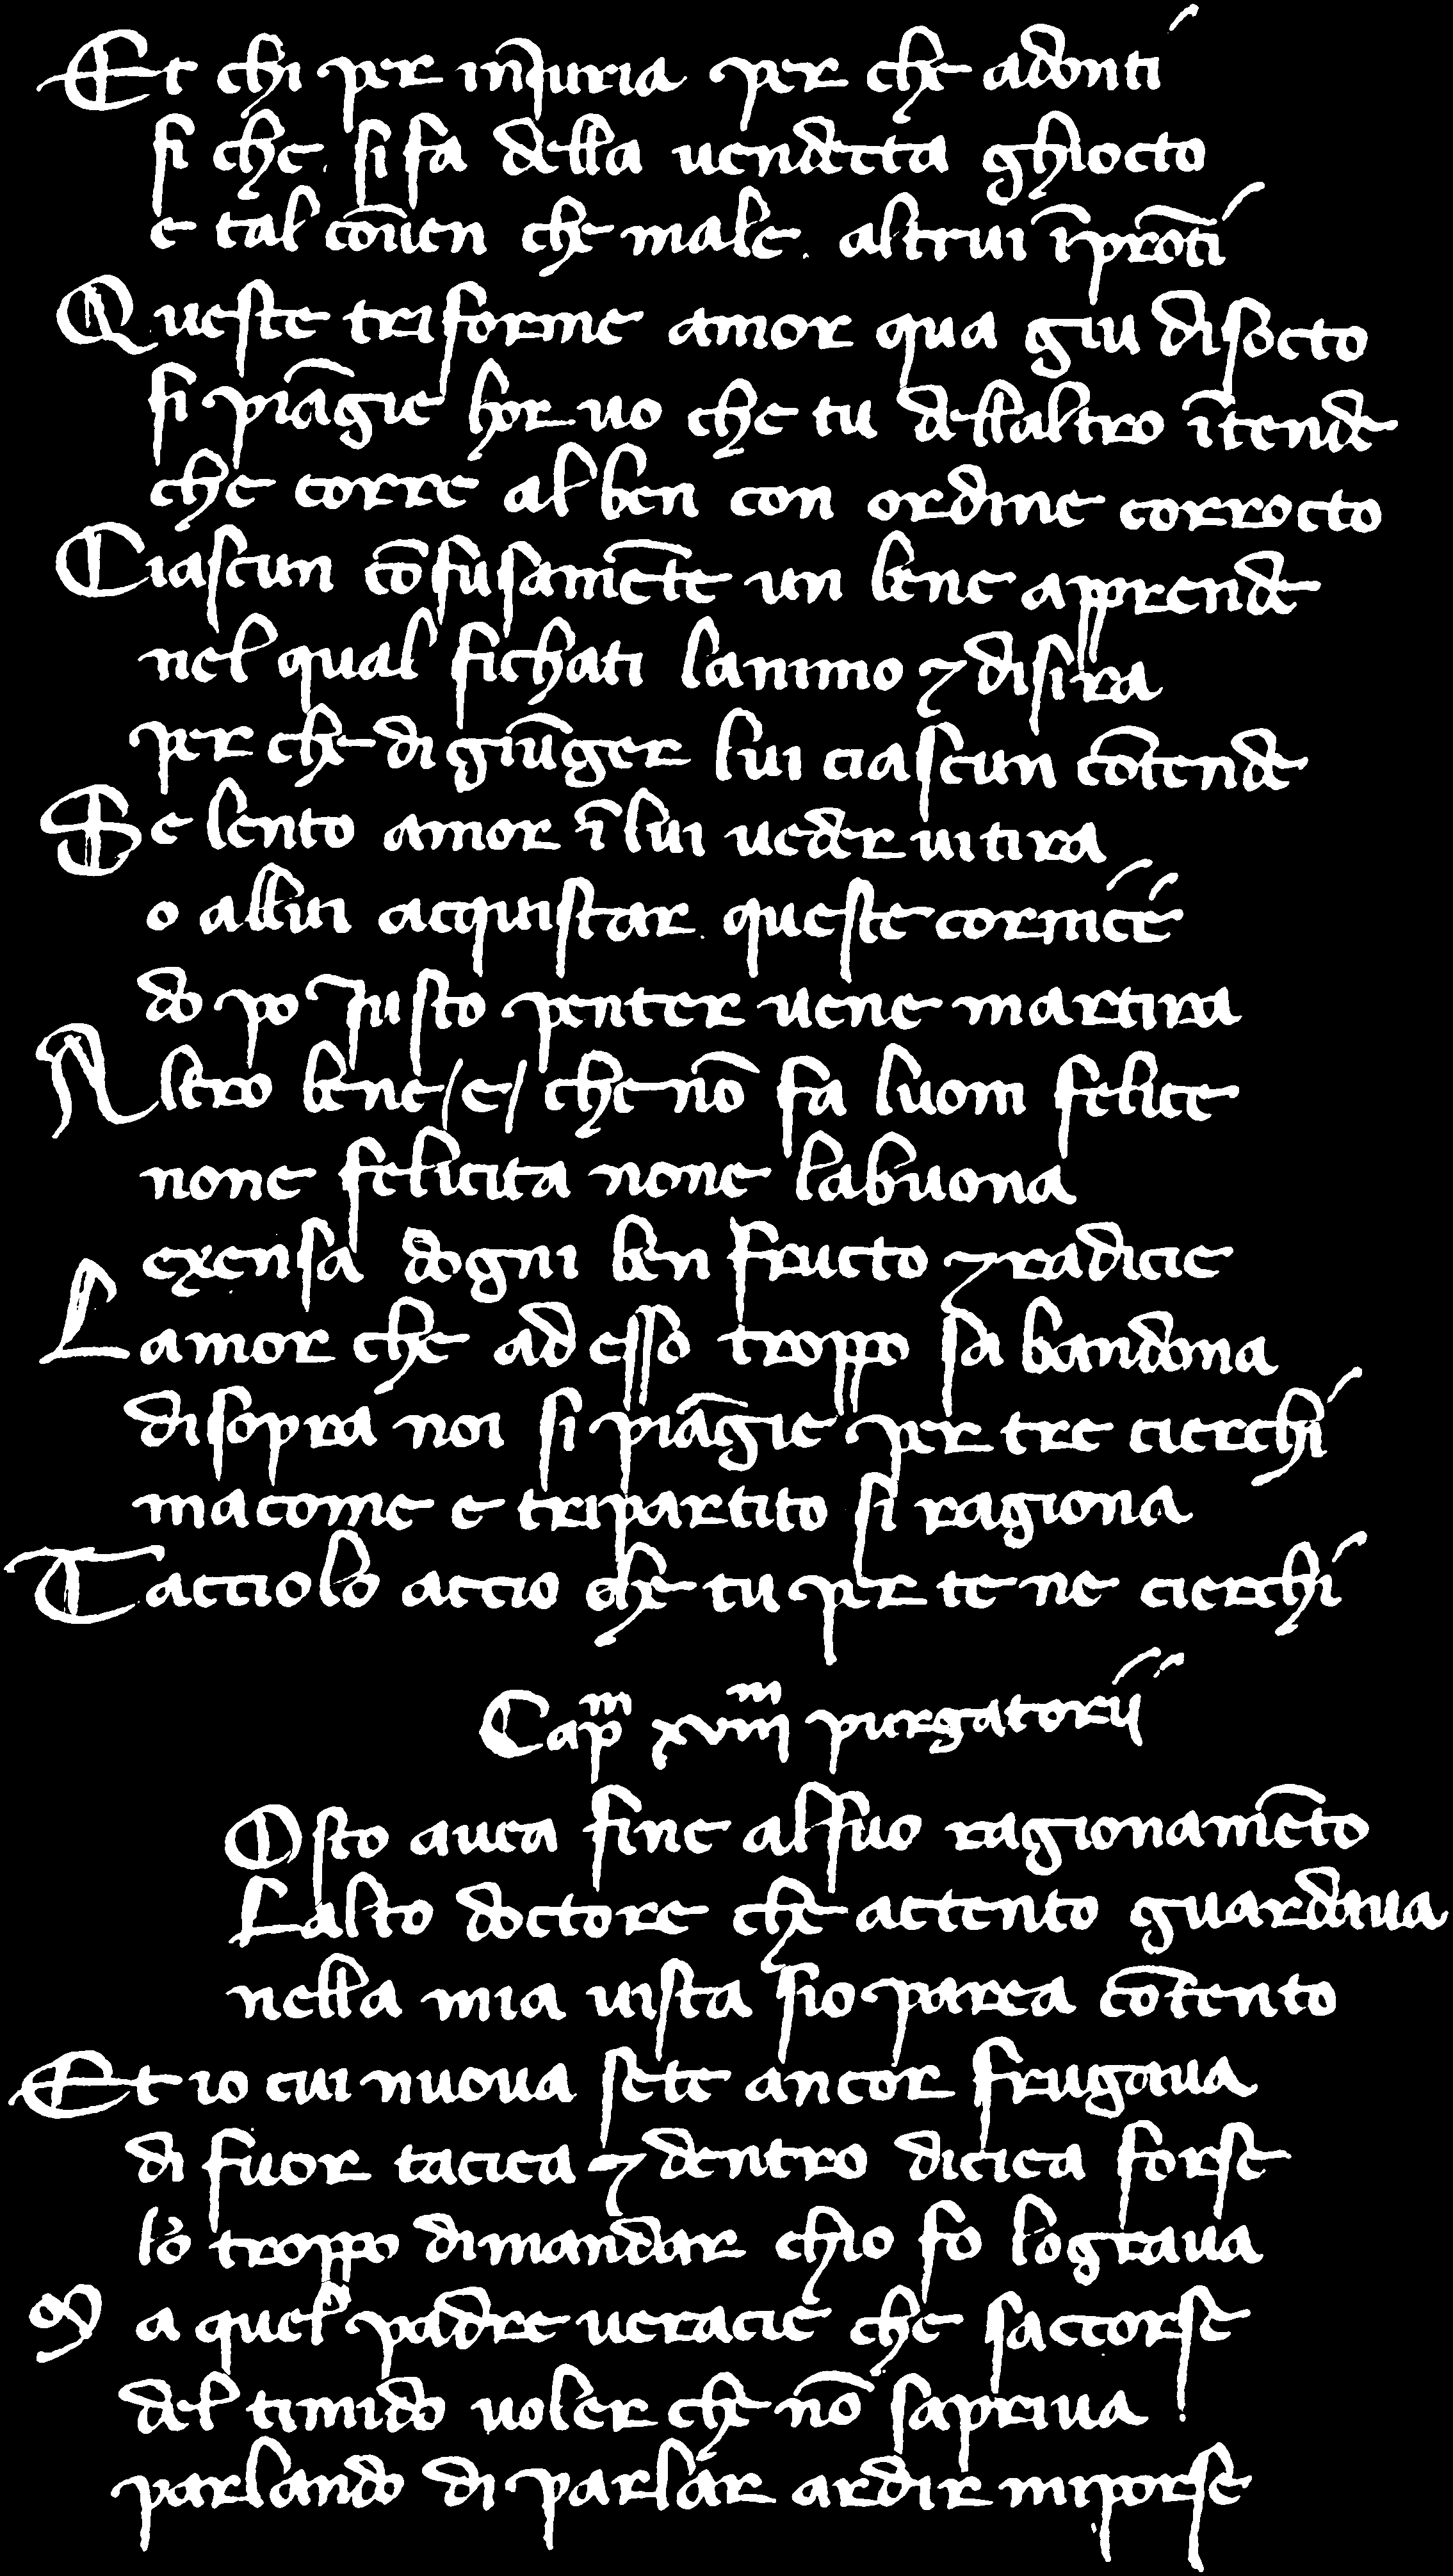 Et chi per inᷓiuria per che adonti
si che. si fa della uendecta ghiocto
e tal cōuien che male. altrui īprōti
Queste triforme amor qua giu disocto
si piāgie hor uo che tu dellaltro ītende
che corre al ben con ordine corrocto
Ciascun cōfusamēte un bene apprende
nel qual fichati lanimo ⁊ disira
per che di giūger lui ciascun cōtende
Se lento amor ī lui ueder ui tira
o allui acquistar. queste cornice
do po Justo penter uene martira
Altro bene/e/ che nō fa luom felice
none felicita none labuona
exensa dogni ben fructo ⁊ radicie
Lamor che ad esso troppo sa bandona
disopra noi si piāgie per tre cierchi
macome e tripartito si ragiona
Tacciolo accio che tu per te ne cierchi
Capᵐ xviiiᵐ purgatorij
Osto auea fine alsuo ragionamēto
Lalto doctore che actento guardaua
nella mia uista sio parea cōtento
Et io cui nuoua sete ancor frugaua
di fuor taciea ⁊ dentro diciea forse
lo troppo dimandar chio fo lograua
Ma quel padre ueracie che saccorse
del timido uoler che nō sapriua
parlando di parlar ardir miporse